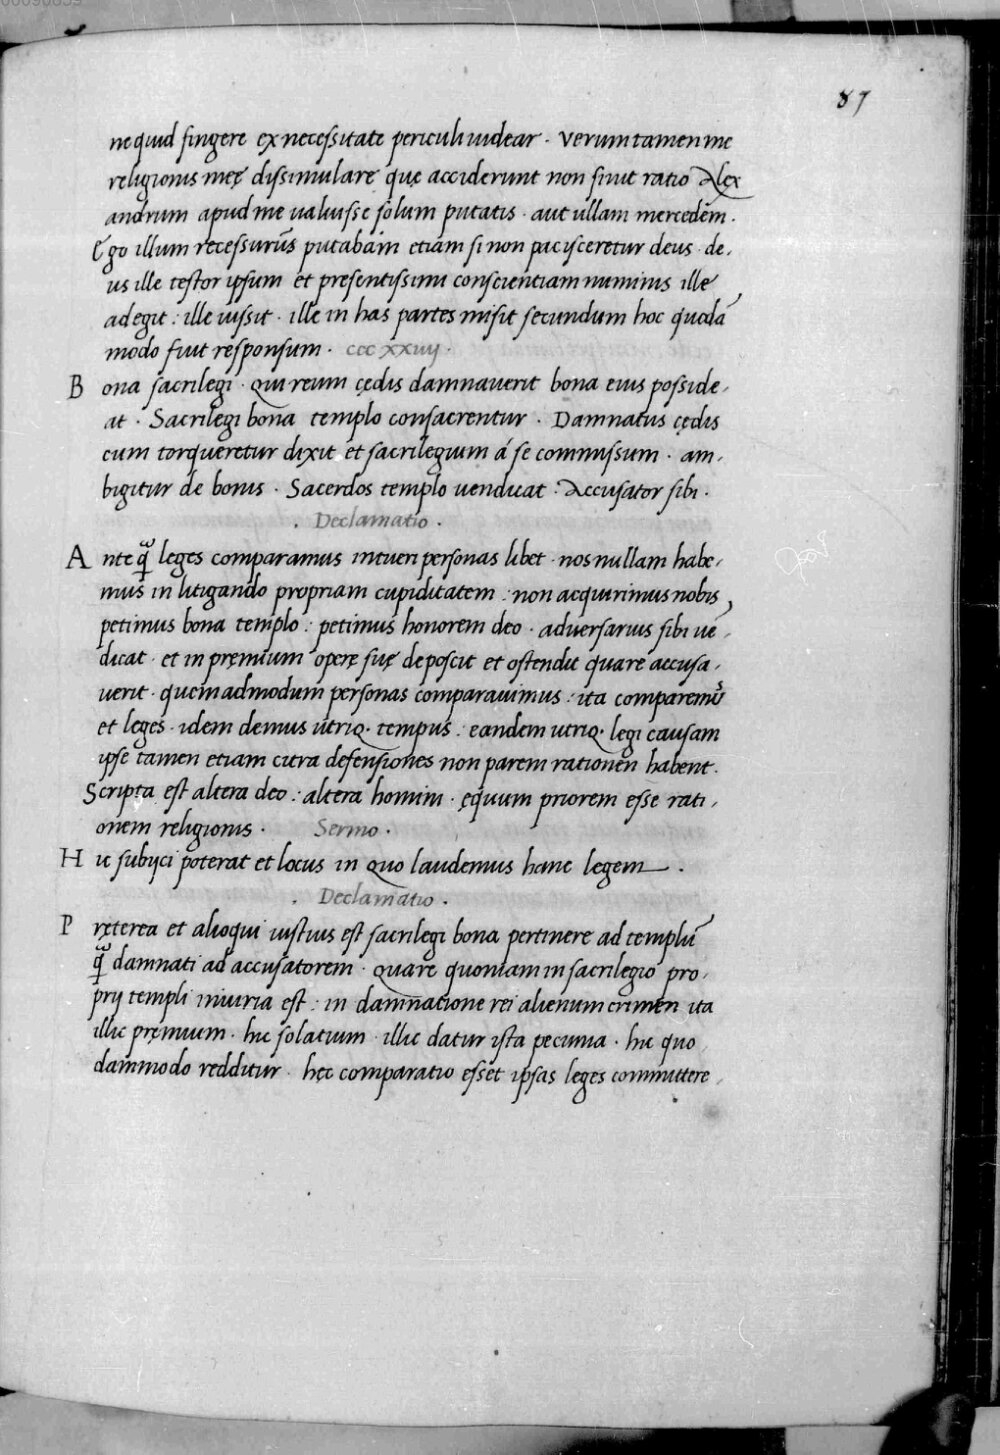 87
ne quid fingere ex necessitate periculi uidear · verumtamen me
religionis meę dissimulare quę acciderunt non sinit ratio Alex
andrum apud me ualuisse solum putatis · aut ullam mercedem ·
Ego illum recessurus putabam etiam si non pacisceretur deus · de,
us ille testor ipsum et presentissimi conscientiam numinis ille
adegit : ille iussit · ille in has partes misit secundum hoc quodā
modo fuit responsum · ccc xxiiij ·
B ona sacrilegi · qui reum cędis damnauerit bona eius posside,
at · Sacrilegi bona templo consacrentur · Damnatus cędis
cum torqueretur dixit et sacrilegium á se commissum · am,
bigitur de bonis · Sacerdos templo uendicat : Accusator sibi ·
· Declamatio ·
A nte q̃ leges comparamus intueri personas libet · nos nullam habe,
mus in litigando propriam cupiditatem : non acquirimus nobis,
petimus bona templo : petimus honorem deo · aduersarius sibi uē,
dicat · et in pręmium operę suę deposcit et ostendit quare accusa,
uerit · quemadmodum personas comparauimus : ita comparemus
et leges · idem demus utriq· tempus : eandem utriq· legi causam
ipse tamen etiam citra defensiones non parem rationem habent ·
Scripta est altera deo : altera homini · ęquum priorem esse rati,
onem religionis · Sermo ·
H ic subijci poterat et locus in quo laudemus hanc legem ·
· Declamatio ·
P rẹterea et alioqui iustius est sacrilegi bona pertinere ad templū
q̃ damnati ad accusatorem · quare quoniam in sacrilegio pro,
prij templi iniuria est : in damnatione rei alienum crimen ita
illic pręmium · hic solatium · illic datur ista pecunia · hic quo,
dammodo redditur · hęc comparatio esset ipsas leges committere,